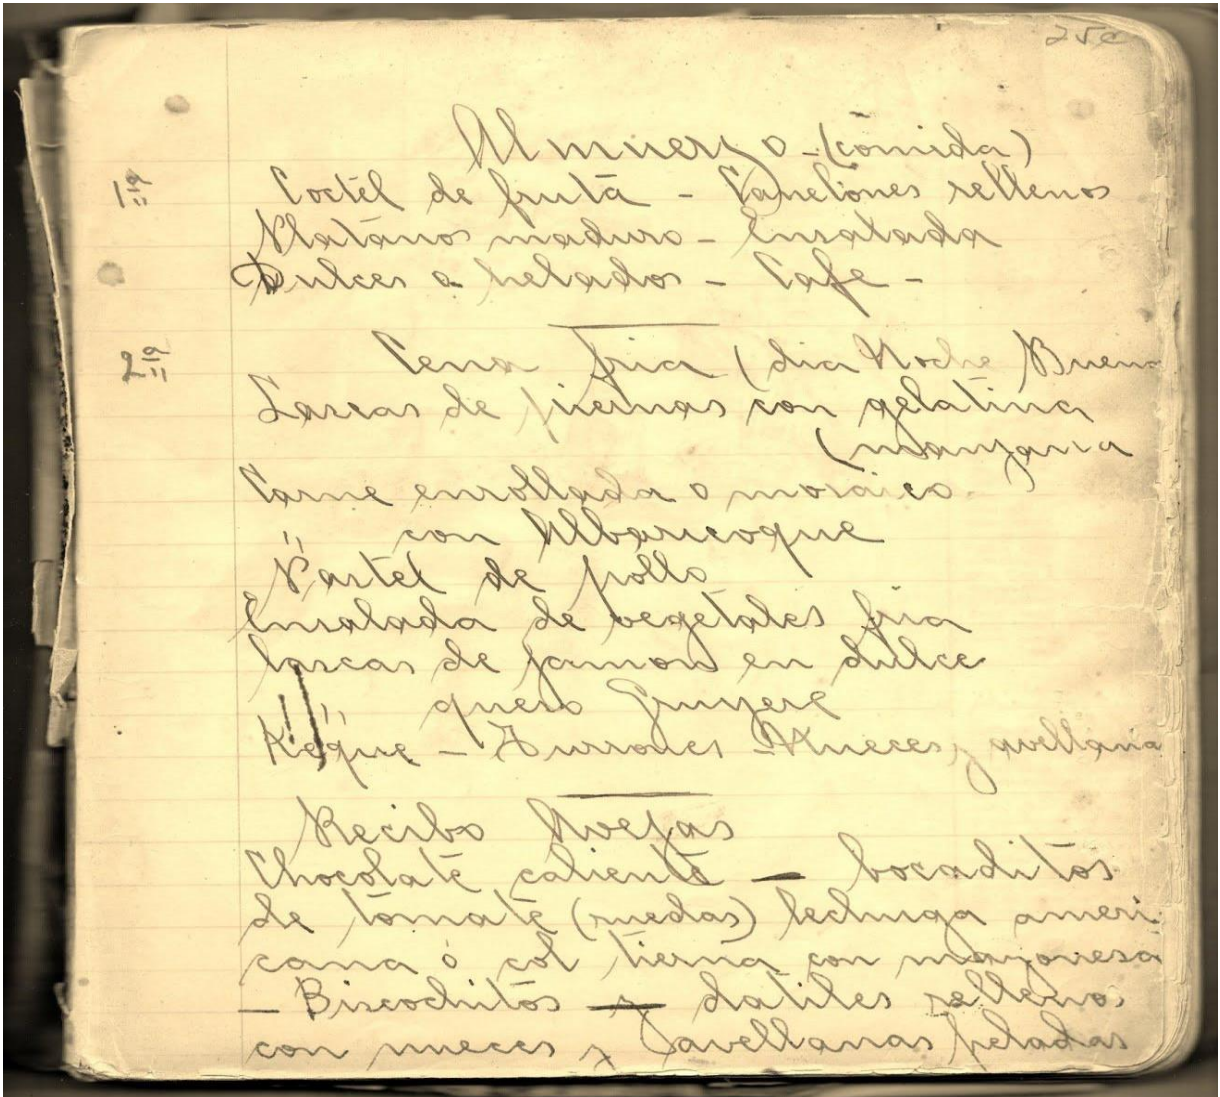 25c
Almuerzo - (comida)
1ª Coctél de fruta - Canelones rellenos
Platanos maduro - Ensalada
Dulces o helados - Cafe -
2ª Cena fria (dia Noche Buena
Lascas de piernas con gelatina
(manzana
Carne enrollada o mosaico
" con Albaricoque
Pastel de pollo
Ensalada de vegetales fria
lascas de jamon en dulce
" " queso Gruyere
Keque - Turrones - Nueces y avellana
Recibo
Chocolate caliente - bocaditos
de tomate (ruedas) lechuga ameri
cana ó col tierna con mayonesa
- Biscochitos - datiles rellenos
con nueces y avellanas peladas